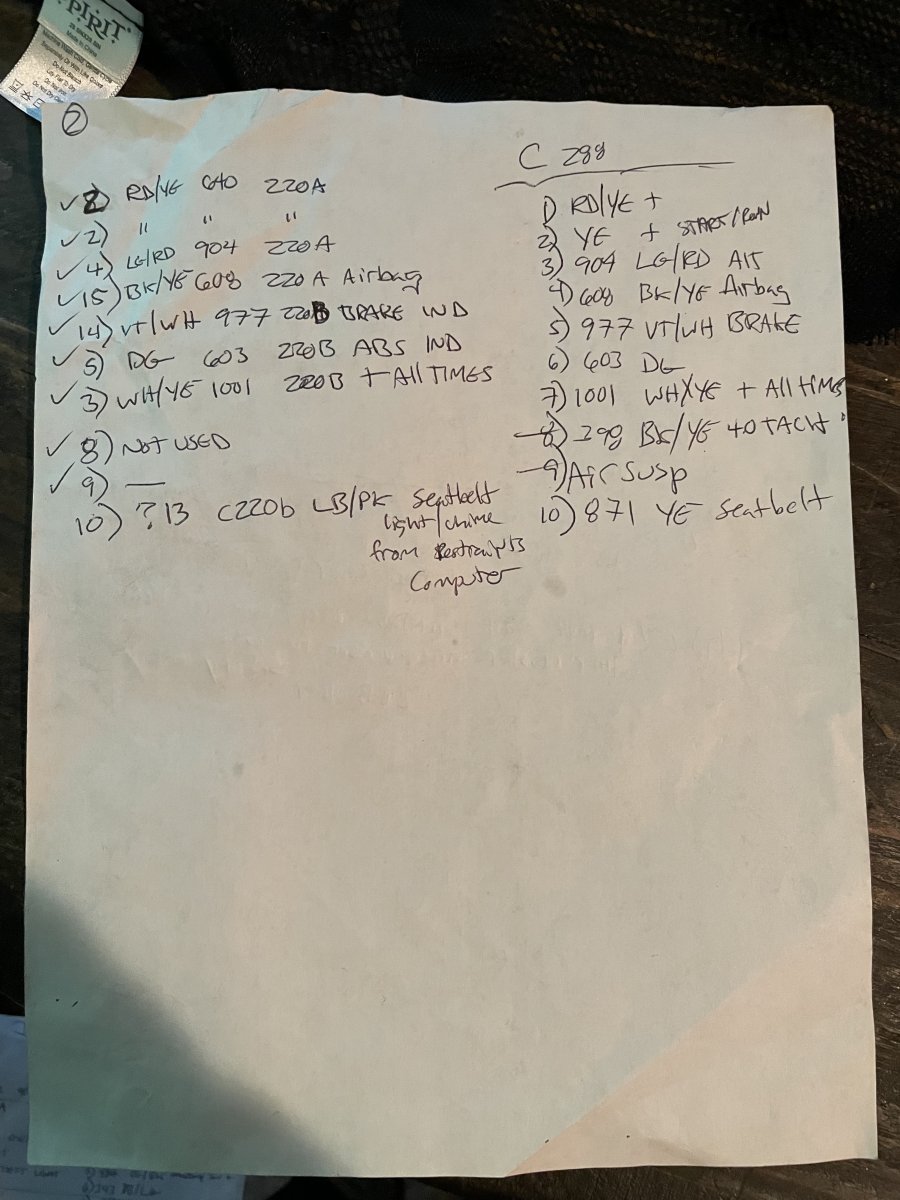 PIRIT
Made in China
Do Not Bleach
②
✓2) RD/YE 640 220A
✓2) " " "
✓4) LG/RD 904 220A
✓15) BK/YE 608 220A Airbag
✓14) VT/WH 977 220B BRAKE IND
✓5) DG 603 220B ABS IND
✓3) WH/YE 1001 220B + All TIMES
✓8) NOT USED
✓9) —
10) ?13 C220b LB/PK Seatbelt
light/chime
from Restraints
Computer
C 288
1) RD/YE +
2) YE + START/RUN
3) 904 LG/RD Alt
4) 608 BK/YE Airbag
5) 977 VT/WH BRAKE
6) 603 DG
7) 1001 WH/YE + All TIMES
8) 398 BK/YE 40 TACH
9) Air Susp
10) 871 YE Seatbelt